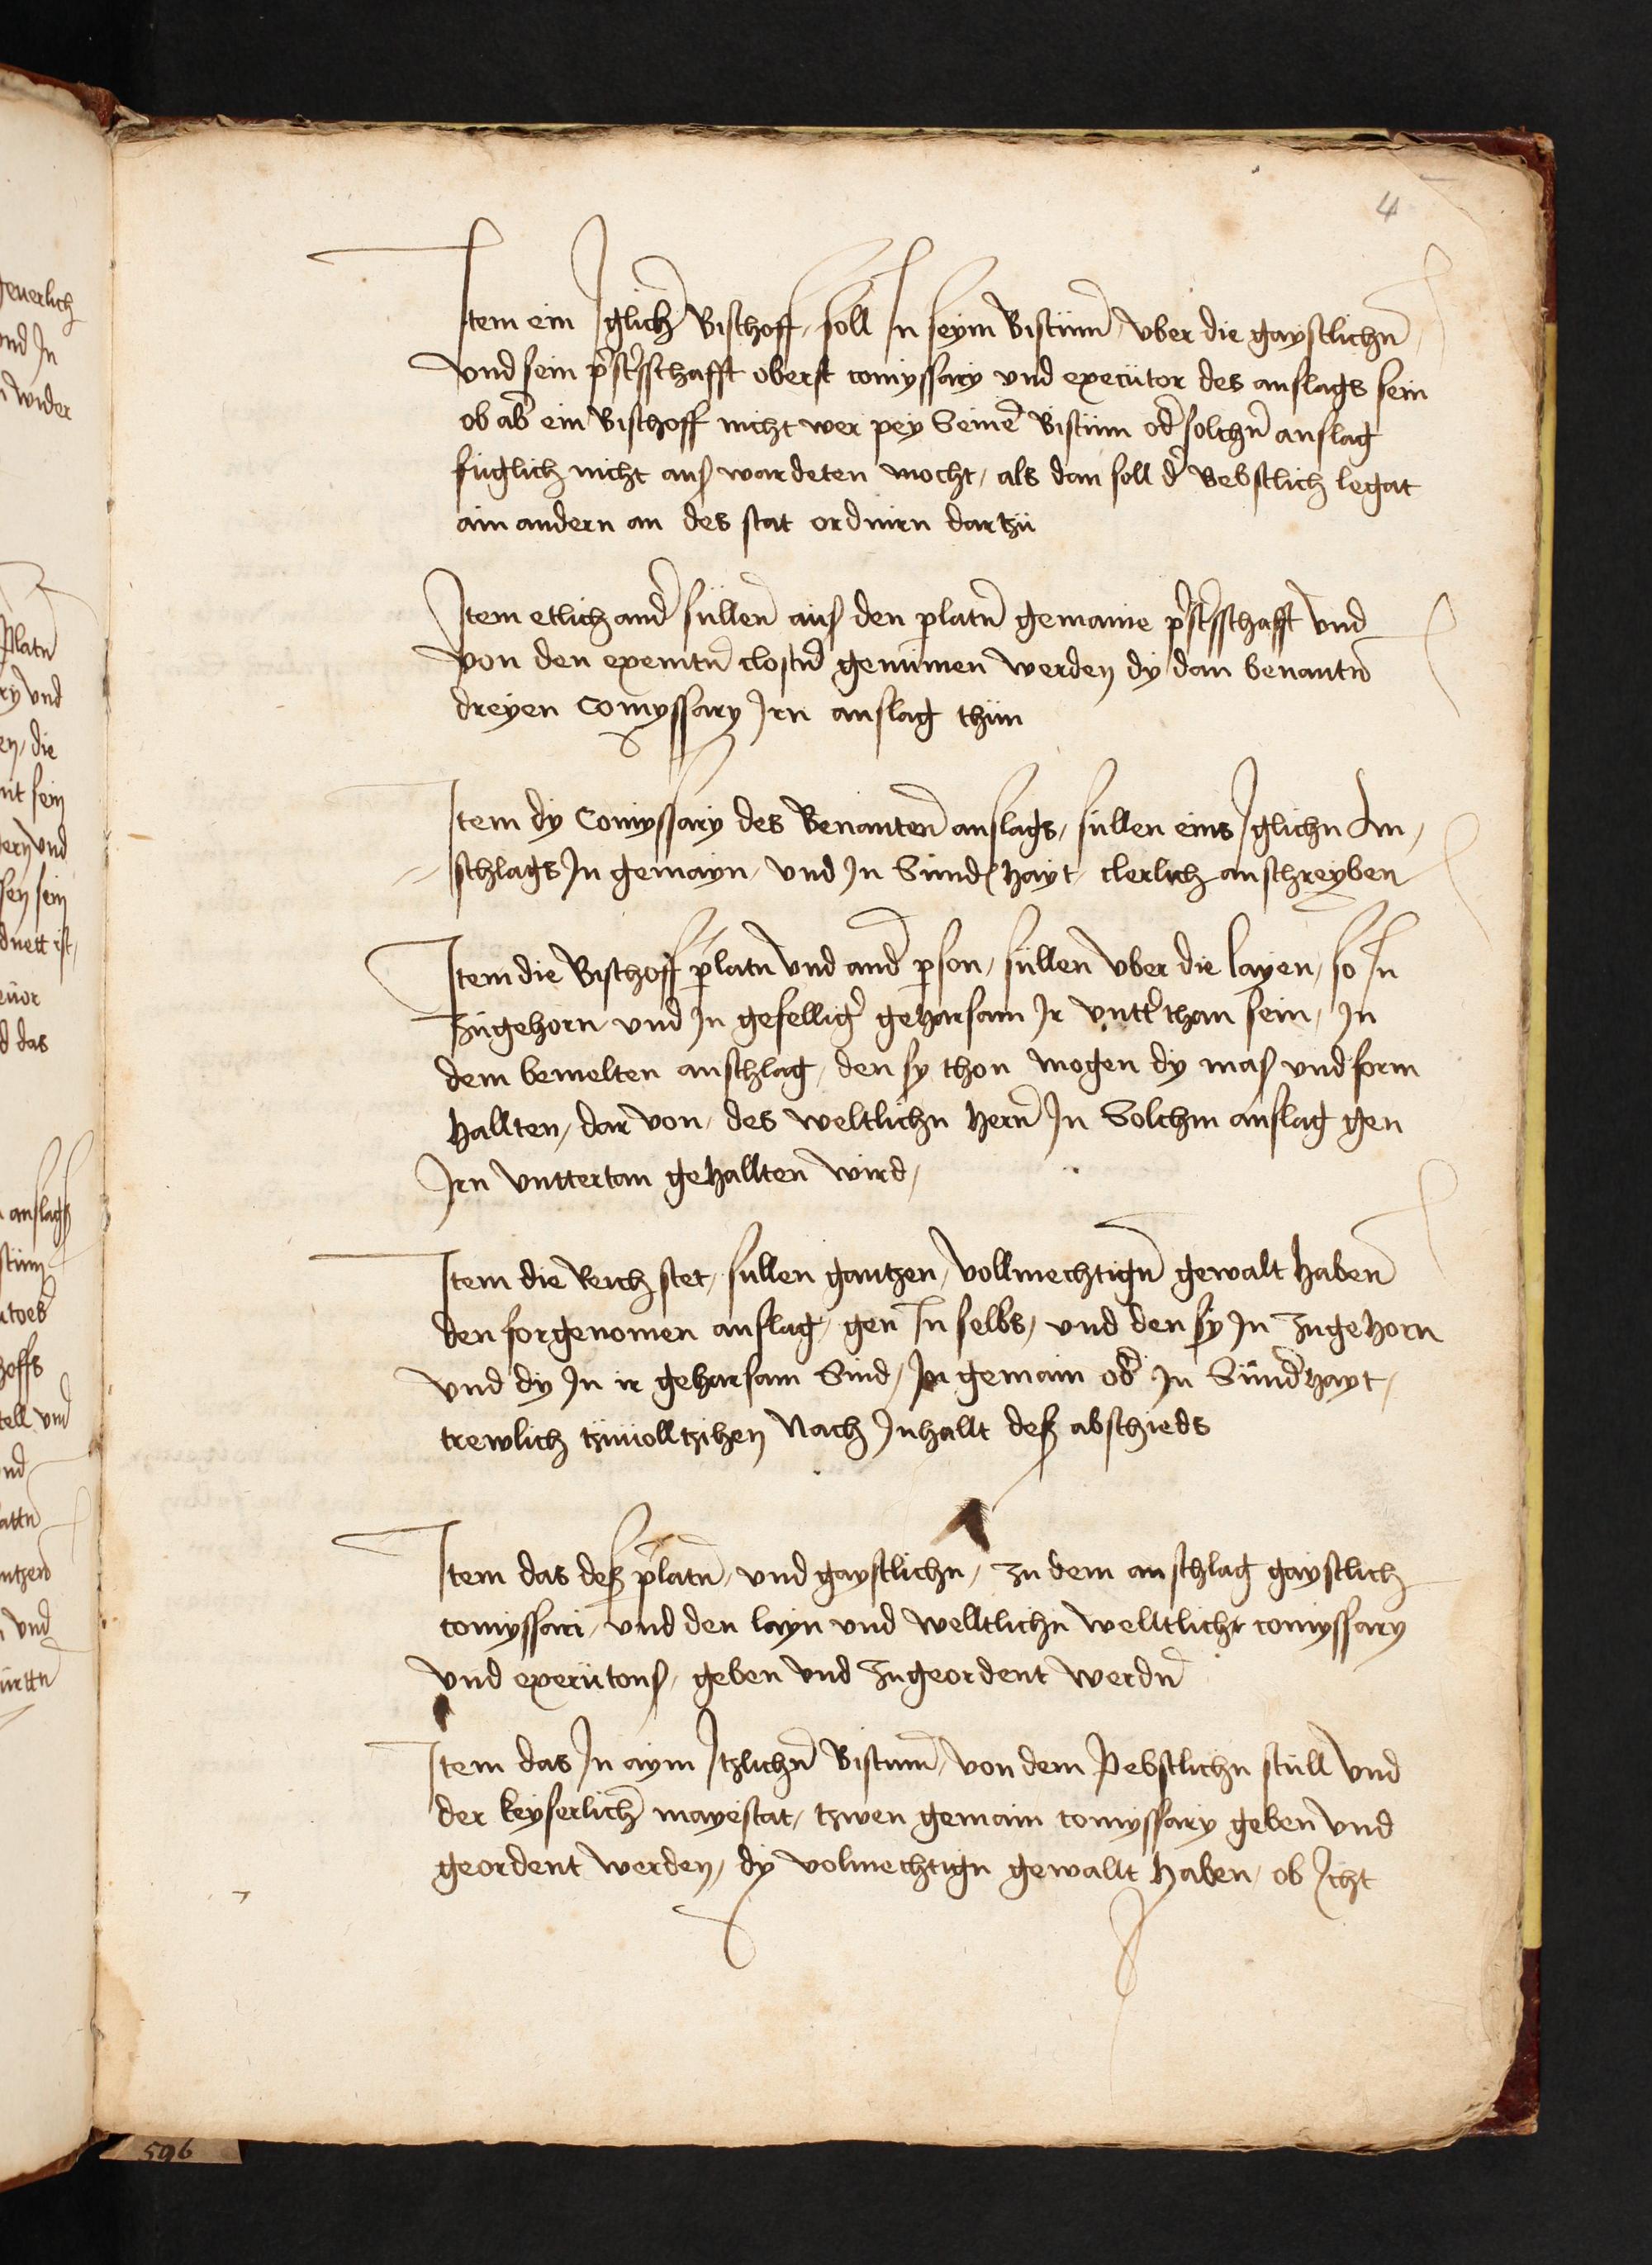 4
Item ein Iglicher Bischoff / soll In seym Bistumb / vber die gaystlichn
vnd sein p̄sterschafft oberst comyssary vnd executor des anslags sein
ob aber ein Bischoff nicht wer pey Seinē Bistum oder solchn̄ anslag
füglich nicht auß wardeten mocht / als dan soll der Bebstlich legat
ain andern an des stat ordnirn dartzü
Item etlich ander süllen auß den platn̄ gemaine p̄sterschafft vnd
von den exemtn̄ clostern genümen werden dy dan benantn̄
dreyen Comyssary Irn anslag thün
Item dy Comyssary des Benanten anslags / süllen eins Iglichn An /
schlags In gemayn / vnd In Sunderhayt / clerlich anschreyben
Item die Bischoff p̄latn̄ vnd ander pson / süllen vber die layen / so In
zugehorn vnd In gefelliger geharsam Ir vntterthan sein / In
dem bemelten anschlag / den sy thon mogen dy maß vnd form
hallten / dar von / des weltlichn hern In Solchm anslag gen
Irn vnttertan gehallten wird /
Item die Reich stet / sullen gantzen / vollmechtign̄ gewalt haben
den forgenomen anslag / gen In selbs / vnd den sy In zugehorn
vnd dy In ir geharsam Sind / In gemain oder In Sünderhayt /
trewlich tzuuolltzihen Nach Inhallt deß abschieds
Item das deß p̄latn̄ / vnd gaystlichn / zu dem anschlag gaystlich
comyssari / vnd den layn vnd welltlichn welltlich comyssary
vnd executorß / geben vnd zugeordent werdn̄
Item das In aym Itzlichn̄ Bistumb / von dem Pebstlichn stull vnd
der keyserlichn̄ mayestat / tzwen gemain comyssary geben vnd
geordent werden / dy volmechtign gewallt haben / ob Icht
596